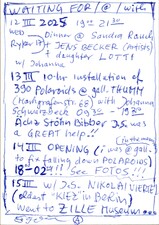 WAITING FOR / @ / with
12 III 2025 19:00 21:30
WED Dinner @ Sandra Rauch,
+ JENS BECKER (Artists)
+ daughter LOTTI
w/ Johanna
13 III 10-hr Installation of
390 Polaroids @ gall. THUMM
with Johanna
Schwarzbeck 09:30 – 19:30
J.S. was
a GREAT help!!
14 III OPENING (i was @ gall.
to fix falling down POLAROIDS
18-02 !!! See FOTOS!!!
15 III w/ J.S. NIKOLAIVIERTEL
(oldest "KIEZ" in Berlin)
went to ZILLE Museum